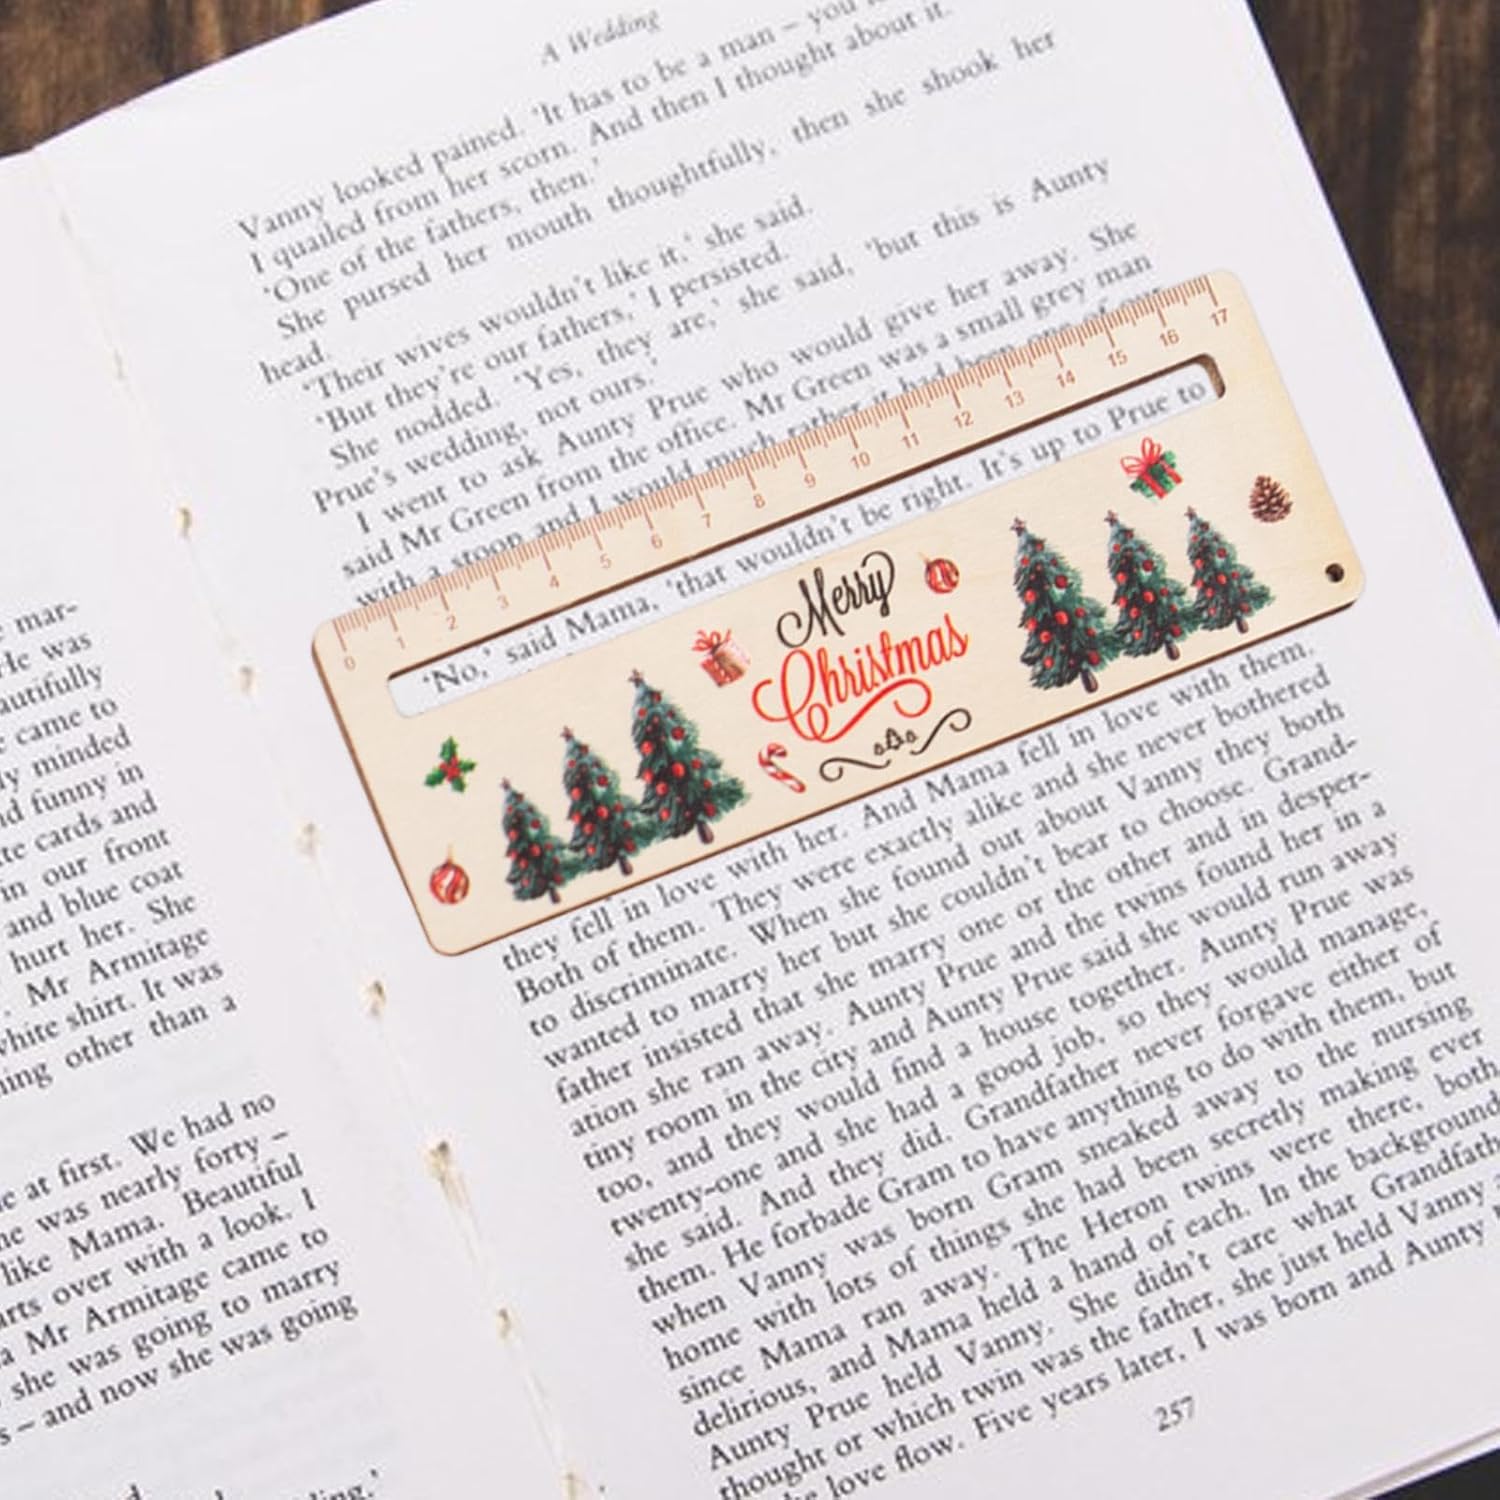 mar-
He was
autifully
came to
ly minded
d funny in
te cards and
in our front
and blue coat
hurt her. She
. Mr Armitage
white shirt. It was
ning other than a
e at first. We had no
ne was nearly forty –
like Mama. Beautiful
arts over with a look. I
a Mr Armitage came to
she was going to marry
s – and now she was going
A Wedding
Vanny looked pained. 'It has to be a man – you
I quailed from her scorn. And then I thought about it.
'One of the fathers, then.'
She pursed her mouth thoughtfully, then she shook her
head.
'Their wives wouldn't like it,' she said.
'But they're our fathers,' I persisted.
She nodded. 'Yes, they are,' she said, 'but this is Aunty
Prue's wedding, not ours.'
I went to ask Aunty Prue who would give her away. She
said Mr Green from the office. Mr Green was a small grey man
with a stoop and I would much rather it had been one of our
0 1 2 3 4 5 6 7 8 9 10 11 12 13 14 15 16 17
'No,' said Mama, 'that wouldn't be right. It's up to Prue to
Merry
Christmas
they fell in love with her. And Mama fell in love with them.
Both of them. They were exactly alike and she never bothered
to discriminate. When she found out about Vanny they both
wanted to marry her but she couldn't bear to choose. Grand-
father insisted that she marry one or the other and in desper-
ation she ran away. Aunty Prue and the twins found her in a
tiny room in the city and Aunty Prue said she would run away
too, and they would find a house together. Aunty Prue was
twenty-one and she had a good job, so they would manage,
she said. And they did. Grandfather never forgave either of
them. He forbade Gram to have anything to do with them, but
when Vanny was born Gram sneaked away to the nursing
home with lots of things she had been secretly making ever
since Mama ran away. The Heron twins were there, both
delirious, and Mama held a hand of each. In the background
Aunty Prue held Vanny. She didn't care what Grandfath
thought or which twin was the father, she just held Vanny
love flow. Five years later, I was born and Aunty
257